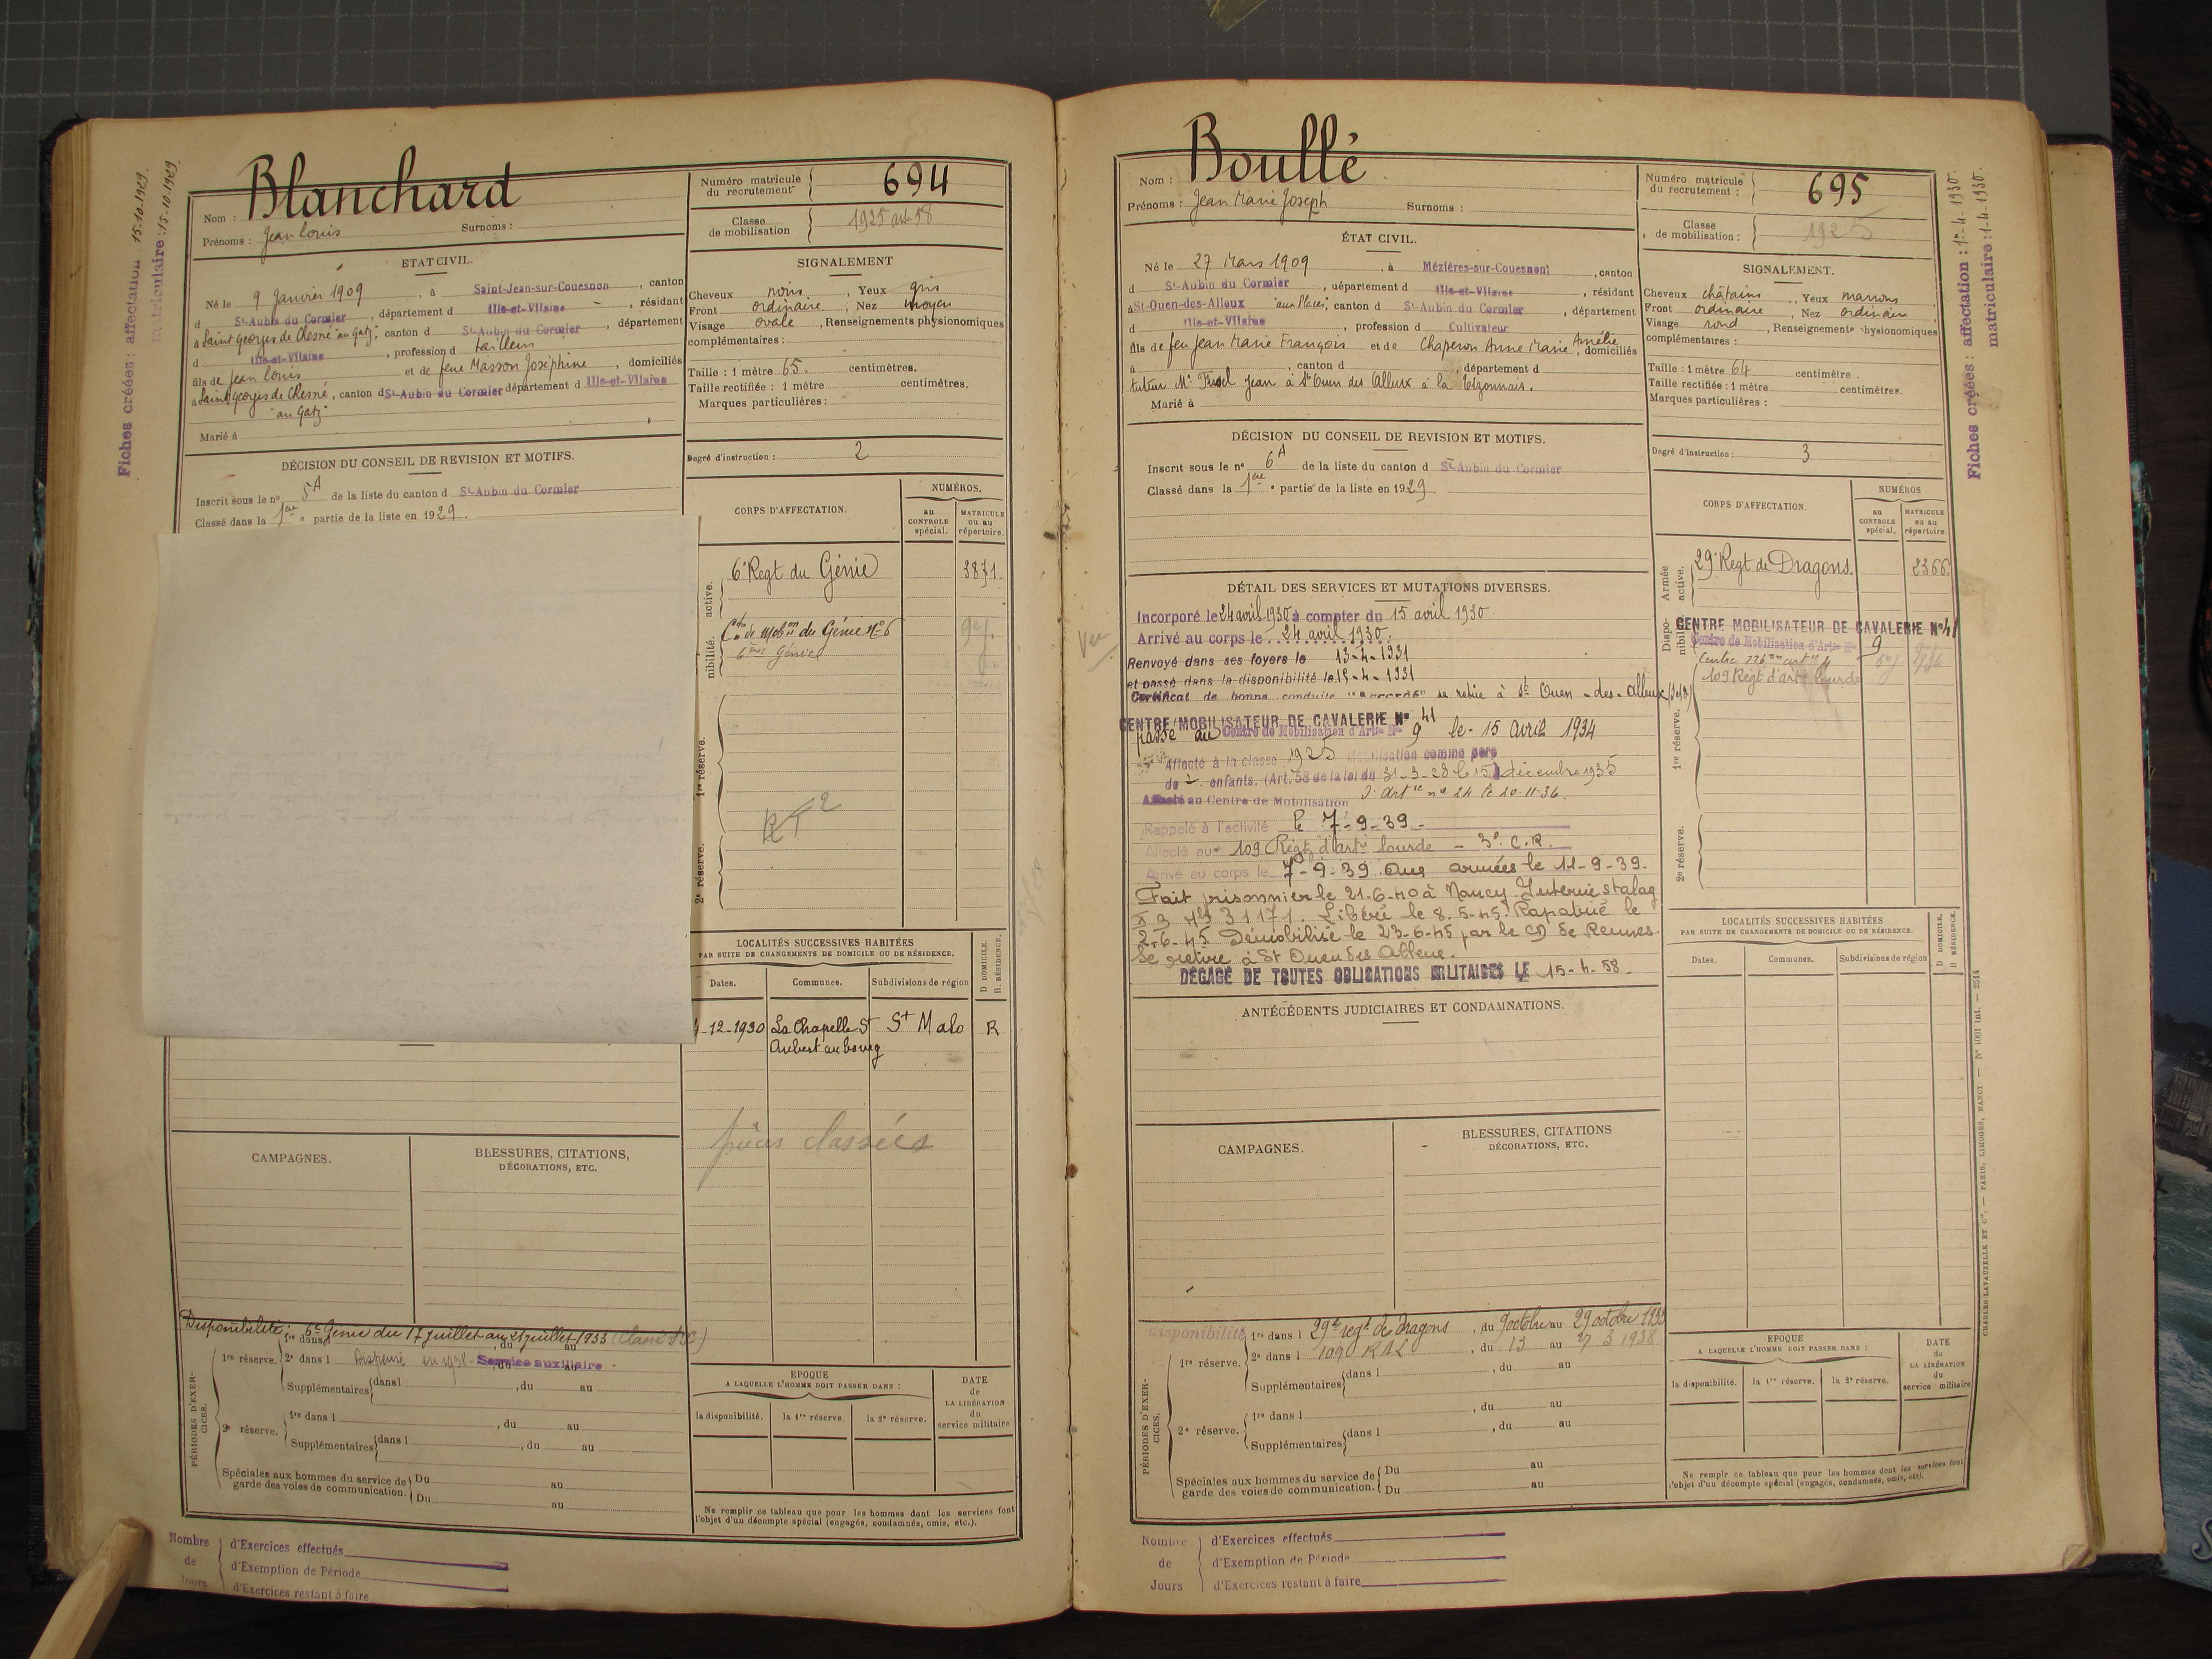 Fiches créées : affectation 15.10.1929.
matriculaire : 15.10.1929
Nom : Blanchard
Prénoms : Jean Louis Surnoms :
Numéro matricule du recrutement 694
Classe de mobilisation 1925 art 58
ETAT CIVIL.
Né le 9 Janvier 1909, à Saint-Jean-sur-Couesnon, canton
d St-Aubin du Cormier, département d Ille-et-Vilaine, résidant
à Saint Georges de Chesné "au Gatz", canton d St-Aubin du Cormier, département
d Ille-et-Vilaine, profession d tailleur
fils de Jean Louis et de feue Masson Joséphine, domiciliés
à Saint Georges de Chesné, canton d St-Aubin du Cormier département d Ille-et-Vilaine
"au Gatz"
Marié à
SIGNALEMENT
Cheveux noirs, Yeux gris
Front ordinaire, Nez moyen
Visage ovale, Renseignements physionomiques
complémentaires :
Taille : 1 mètre 65. centimètres.
Taille rectifiée : 1 mètre centimètres.
Marques particulières :
Degré d'instruction : 2
DÉCISION DU CONSEIL DE REVISION ET MOTIFS.
Inscrit sous le no 5A de la liste du canton d St-Aubin du Cormier
Classé dans la 1ère partie de la liste en 1929.
CORPS D'AFFECTATION.
NUMÉROS.
au CONTROLE spécial.
MATRICULE ou au répertoire.
active.
6e Regt du Génie 3871.
nibilité.
Ctre de Mobon du Génie No 6
6ème Génie
1re réserve.
2e réserve.
LOCALITÉS SUCCESSIVES HABITÉES
PAR SUITE DE CHANGEMENTS DE DOMICILE OU DE RÉSIDENCE.
D. DOMICILE.
R. RÉSIDENCE.
Dates. Communes. Subdivisions de région
-12-1930 La Chapelle St St Malo R
Aubert au bourg
pièces classées
CAMPAGNES.
BLESSURES, CITATIONS,
DÉCORATIONS, ETC.
Disponibilité : 6e Génie du 17 juillet au 21 juillet 1933
PÉRIODES D'EXERCICES.
1re réserve.
1re dans l , du au
2e dans l Dispensé en 1938 - Service auxiliaire - , du au
Supplémentaires dans l , du au
2e réserve.
1re dans l , du au
Supplémentaires dans l , du au
Spéciales aux hommes du service de garde des voies de communication. Du au
Du au
EPOQUE
A LAQUELLE L'HOMME DOIT PASSER DANS :
la disponibilité. la 1re réserve. la 2e réserve.
DATE de LA LIBÉRATION du service militaire
Ne remplir ce tableau que pour les hommes dont les services font
l'objet d'un décompte spécial (engagés, condamnés, omis, etc.).
Nombre de Jours
d'Exercices effectués
d'Exemption de Période
d'Exercices restant à faire
Nom : Boullé
Prénoms : Jean Marie Joseph Surnoms :
Numéro matricule du recrutement : 695
Classe de mobilisation : 1925
Fiches créées : affectation : 1-4-1930.
matriculaire : 1-4-1930
ÉTAT CIVIL.
Né le 27 Mars 1909, à Mézières-sur-Couesnon, canton
d St-Aubin du Cormier, département d Ille-et-Vilaine, résidant
à St-Ouen-des-Alleux "aux Places", canton d St-Aubin du Cormier, département
d Ille-et-Vilaine, profession d Cultivateur
fils de feu Jean Marie François et de Chaperon Anne Marie Amélie, domiciliés
à , canton d , département d
tuteur Mr Jean à St Ouen des Alleux à la
Marié à
SIGNALEMENT.
Cheveux châtains, Yeux marrons
Front ordinaire, Nez ordinaire
Visage rond, Renseignements physionomiques
complémentaires :
Taille : 1 mètre 64 centimètre.
Taille rectifiée : 1 mètre centimètres.
Marques particulières :
Degré d'instruction : 3
DÉCISION DU CONSEIL DE REVISION ET MOTIFS.
Inscrit sous le no 6A de la liste du canton d St-Aubin du Cormier
Classé dans la 1ère partie de la liste en 1929.
DÉTAIL DES SERVICES ET MUTATIONS DIVERSES.
Incorporé le 24 avril 1930 à compter du 15 avril 1930.
Arrivé au corps le 24 avril 1930.
Renvoyé dans ses foyers le 13-4-1931
et passé dans la disponibilité le 15-4-1931
Certificat de bonne conduite "Accordé" se retire à St Ouen-des-Alleux
CENTRE MOBILISATEUR DE CAVALERIE No 41
passé au Centre de Mobilisation d'Artie No 9 le 15 Avril 1934
Affecté à la classe 1925 Mobilisation comme père
de 2 enfants. (Art. 58 de la loi du 31-3-28 le 15 décembre 1935
Affecté au Centre de Mobilisation d'Artie no 24 le 20-11-36.
Rappelé à l'activité le 7-9-39
Affecté au 109 Régt d'artie lourde - 3e C.R.
Arrivé au corps le 7-9-39. Aux armées le 11-9-39.
Fait prisonnier le 21-6-40 à Nancy. Interné stalag
X B No 31171. Libéré le 8-5-45. Rapatrié le
2-6-45 Démobilisé le 23-6-45 par le CD de Rennes.
Se retire à St Ouen des Alleux.
DÉGAGÉ DE TOUTES OBLIGATIONS MILITAIRES LE 15-4-58
CORPS D'AFFECTATION.
NUMÉROS
au CONTROLE spécial.
MATRICULE ou au répertoire.
Armée active.
29e Regt de Dragons. 2366.
Disponibilité
CENTRE MOBILISATEUR DE CAVALERIE No 41
Centre de Mobilisation d'Artie No 9
109 Régt d'artie lourde
1re réserve.
2e réserve.
ANTÉCÉDENTS JUDICIAIRES ET CONDAMNATIONS.
LOCALITÉS SUCCESSIVES HABITÉES
PAR SUITE DE CHANGEMENTS DE DOMICILE OU DE RÉSIDENCE.
D DOMICILE.
R RÉSIDENCE.
Dates. Communes. Subdivisions de région
CAMPAGNES.
BLESSURES, CITATIONS
DÉCORATIONS, ETC.
disponibilité
PÉRIODES D'EXERCICES.
1re réserve.
1re dans l 29e regt de dragons, du 9 octobre au 29 octobre 1933
2e dans l 109 RAL, du 13 au 27 3 1938
Supplémentaires dans l , du au
2e réserve.
1re dans l , du au
Supplémentaires dans l , du au
Spéciales aux hommes du service de garde des voies de communication. Du au
Du au
EPOQUE
A LAQUELLE L'HOMME DOIT PASSER DANS :
la disponibilité. la 1re réserve. la 2e réserve.
DATE de LA LIBÉRATION du service militaire
Ne remplir ce tableau que pour les hommes dont les services font
l'objet d'un décompte spécial (engagés, condamnés, omis, etc).
CHARLES-LAVAUZELLE ET Cie. — PARIS, LIMOGES, NANCY. — No 1001 int. — 2514
Nombre de Jours
d'Exercices effectués
d'Exemption de Période
d'Exercices restant à faire